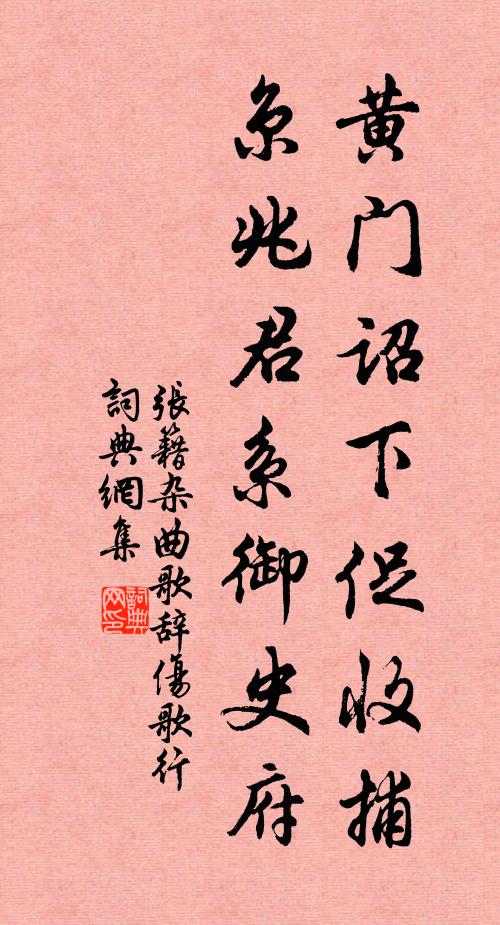 黄门诏下促收捕
京兆君系御史府
張籍杂曲歌辞傷歌行
詞典網集
詞典网印